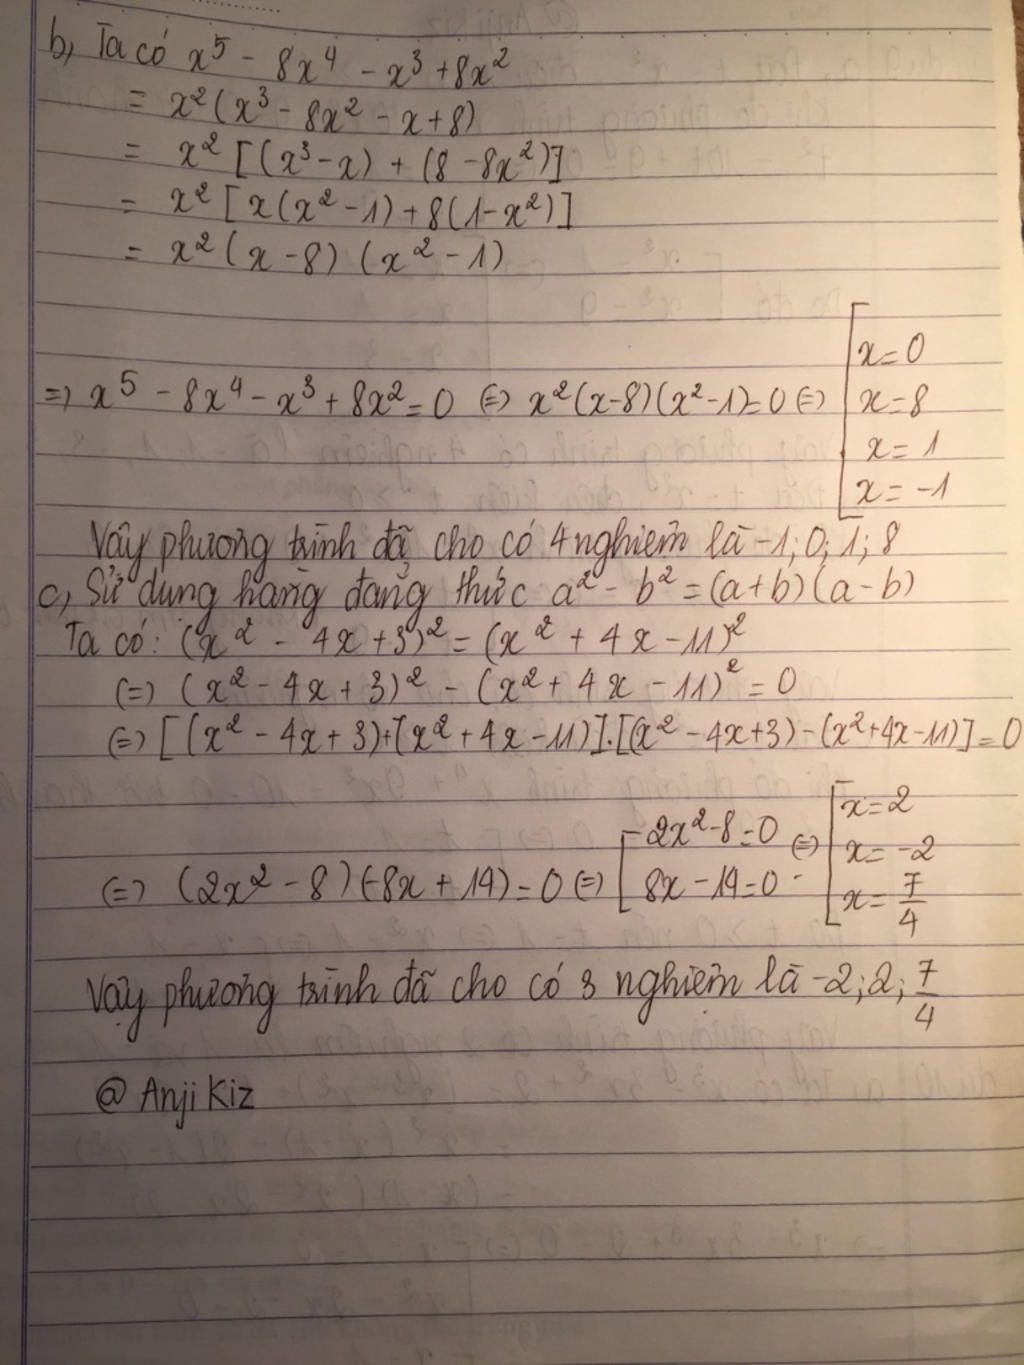 b, Ta có x⁵ - 8x⁴ - x³ + 8x²
= x²(x³ - 8x² - x + 8)
= x² [(x³ - x) + (8 - 8x²)]
= x² [x(x² - 1) + 8(1 - x²)]
= x² (x - 8) (x² - 1)
=> x⁵ - 8x⁴ - x³ + 8x² = 0 (=) x²(x-8)(x²-1)=0 (=) [x=0
x=8
x=1
x=-1
Vậy phương trình đã cho có 4 nghiệm là -1; 0; 1; 8
c, Sử dụng hằng đẳng thức a² - b² = (a+b)(a-b)
Ta có: (x² - 4x + 3)² = (x² + 4x - 11)²
(=) (x² - 4x + 3)² - (x² + 4x - 11)² = 0
(=) [(x² - 4x + 3)+(x² + 4x - 11)].[(x² - 4x+3) - (x²+4x-11)] = 0
(=) (2x² - 8)(-8x + 14) = 0 (=) [2x² - 8 = 0
8x - 14 = 0 (=) [x = 2
x = -2
x = 7/4
Vậy phương trình đã cho có 3 nghiệm là -2; 2; 7/4
@ Anji Kiz